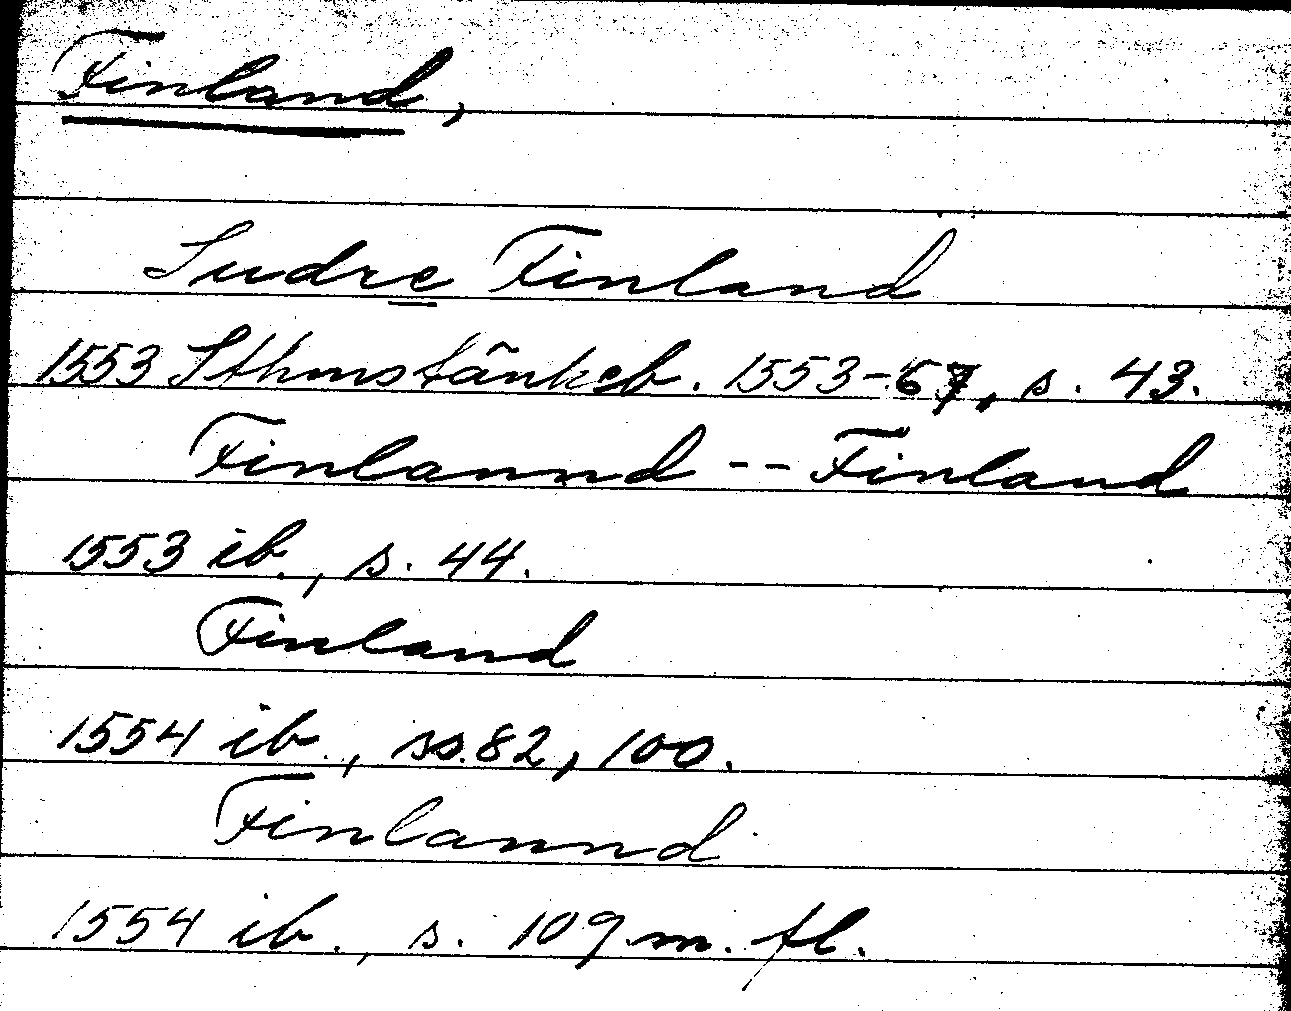 Finland,
Sudre Finland
1553 Sthmstänkeb. 1553-67, s. 43.
Finlannd -- Finland
1553 ib., s. 44.
Finland
1554 ib., ss. 82, 100.
Finlannd
1554 ib., s. 109 m. fl.